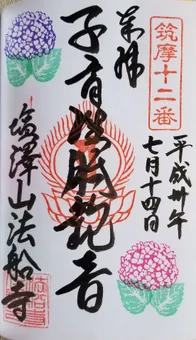 筑摩十二番
平成卅年
七月十四日
奉拝
子育聖観音
塩澤山法船寺